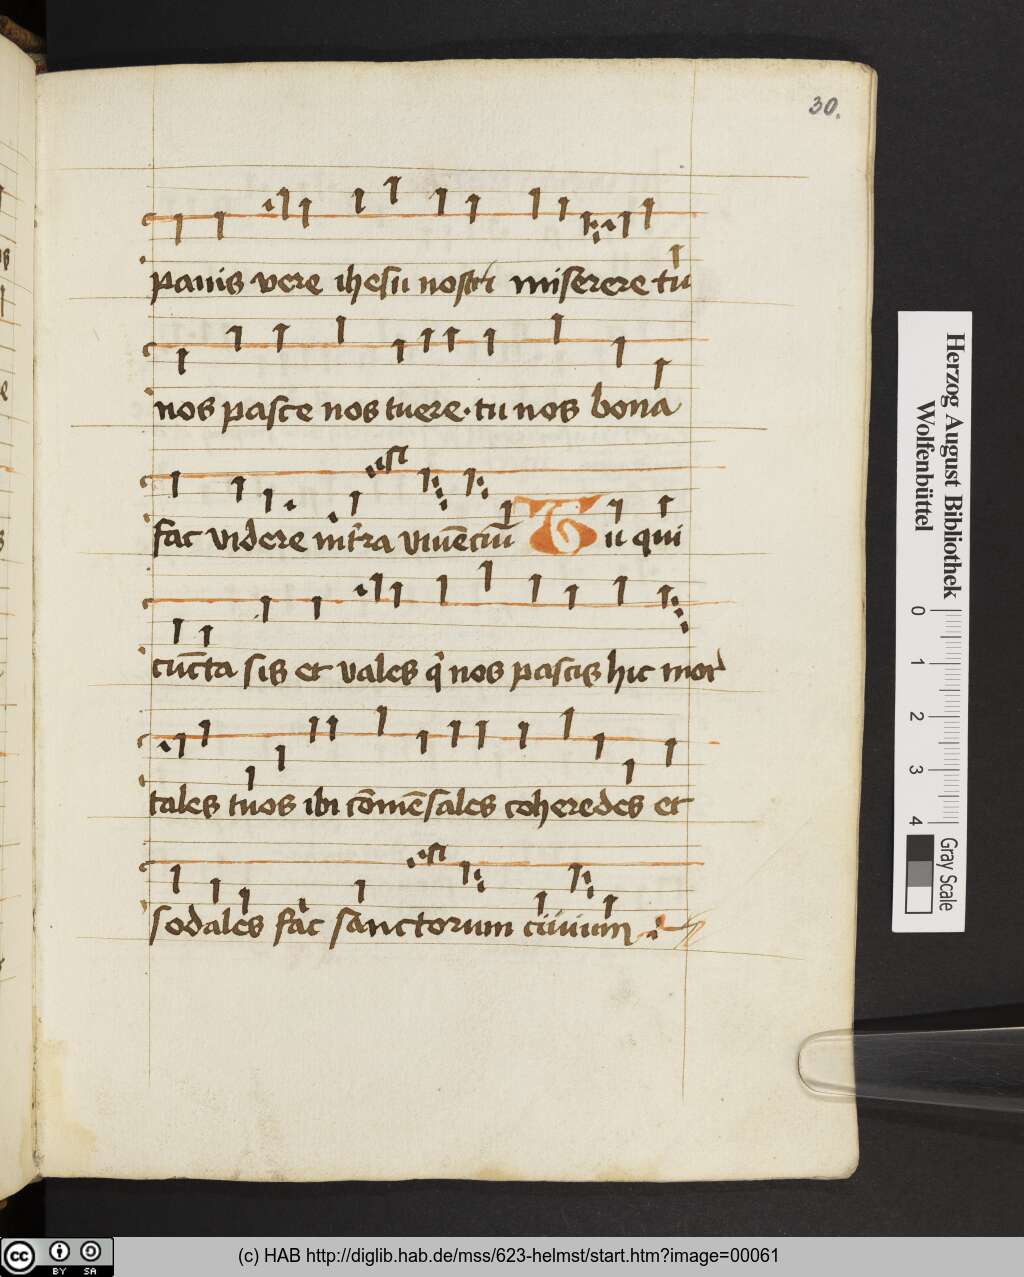 30.
panis vere ihesu nostri miserere tu
nos pasce nos tuere· tu nos bona
fac videre int᷑ra viuēciū Tu qui
cūcta sis et vales q᷑ nos pascis hic mor
tales tuos ibi cōmēsales coheredes et
sodales fac sanctorum ciuium
Herzog August Bibliothek
Wolfenbüttel
0 1 2 3 4
Gray Scale
cc BY SA
(c) HAB http://diglib.hab.de/mss/623-helmst/start.htm?image=00061